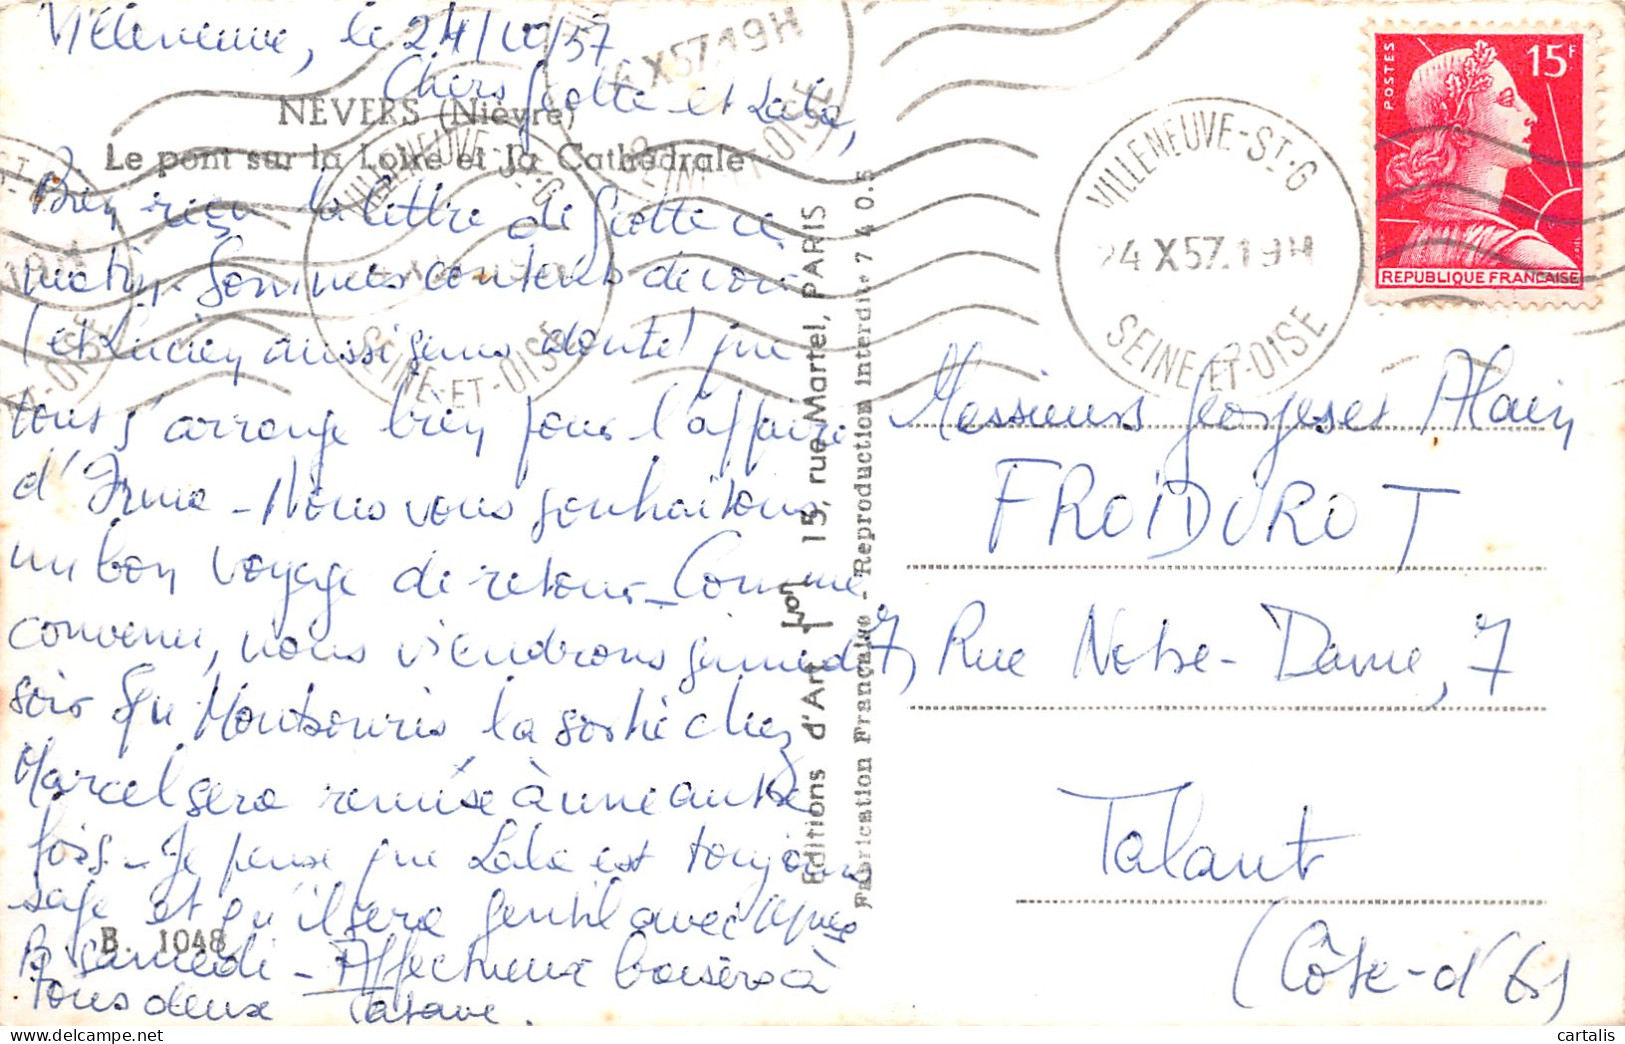 Villeneuve, le 24/10/57
Chers Geotte et Lala,
NEVERS (Nièvre)
Le pont sur la Loire et la Cathédrale
Bien reçu la lettre de Geotte ce
matin. Sommes contents de voir
(et Lucien aussi sans doute) que
tout s'arrange bien pour l'affaire
d'Irma - Nous vous souhaitons
un bon voyage de retour - Comme
convenu, nous viendrons samedi
soir Montsouris la sortie chez
Marcel sera remise à une autre
fois - Je pense que Lala est toujours
sage et qu'il sera gentil avec
samedi - Affectueux baisers à
tous deux Tatave.
B. 1048
Editions d'Art Yvon 15, rue Martel, PARIS
Fabrication Française - Reproduction interdite 7 4 0.5
VILLENEUVE-ST-G
24 X57.19H
SEINE-ET-OISE
POSTES
15F
REPUBLIQUE FRANÇAISE
Messieurs Georges et Alain
FROIDUROT
7, Rue Notre-Dame, 7
Talant
(Côte-d'Or)
cartalis